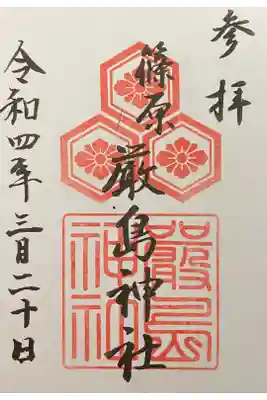 参拝
篠原
厳島神社
嚴島
神社
令和四年三月二十日